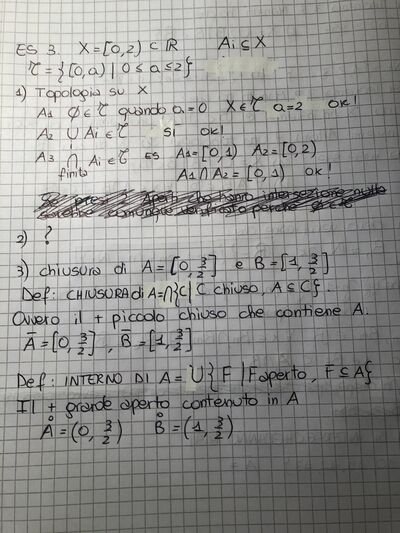 ES 3. X = [0,2) ⊂ ℝ Ai ⊆ X
τ = {[0,a) | 0 ≤ a ≤ 2}
1) Topologia su X
A1 ∅ ∈ τ quando a=0 X ∈ τ, a=2 ok!
A2 ∪ Ai ∈ τ si ok!
A3 ∩ Ai ∈ τ ES A1 = [0,1) A2 = [0,2)
finito A1 ∩ A2 = [0,1) ok!
2) ?
3) chiusura di A = [0, 3/2] e B = [1, 3/2]
Def: CHIUSURA di A = ∩{C | C chiuso, A ⊆ C}.
Ovvero il + piccolo chiuso che contiene A.
Ā = [0, 3/2], B̄ = [1, 3/2]
Def: INTERNO DI A = ∪{F | F aperto, F ⊆ A}
Il + grande aperto contenuto in A
Å = (0, 3/2) B̊ = (1, 3/2)